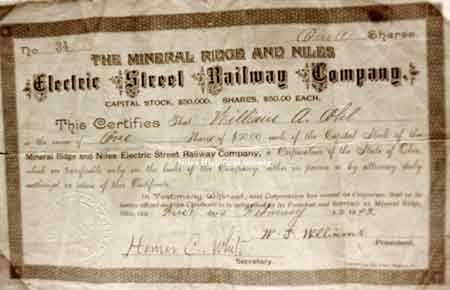 No. 34 One Shares.
THE MINERAL RIDGE AND NILES
Electric Street Railway Company.
CAPITAL STOCK, $50,000. SHARES, $50.00 EACH.
This Certifies That William A. Ohl
is the owner of One Share of $50.00 each of the Capital Stock of the
Mineral Ridge and Niles Electric Street Railway Company, a Corporation of the State of Ohio,
which are transferable only on the books of the Company, either in person or by attorney duly
In Testimony Whereof, said Corporation has caused its Corporate Seal to be
President and Secretary at Mineral Ridge,
Ohio, this first day February
Homer C. White W. I. Williams
Secretary. President.